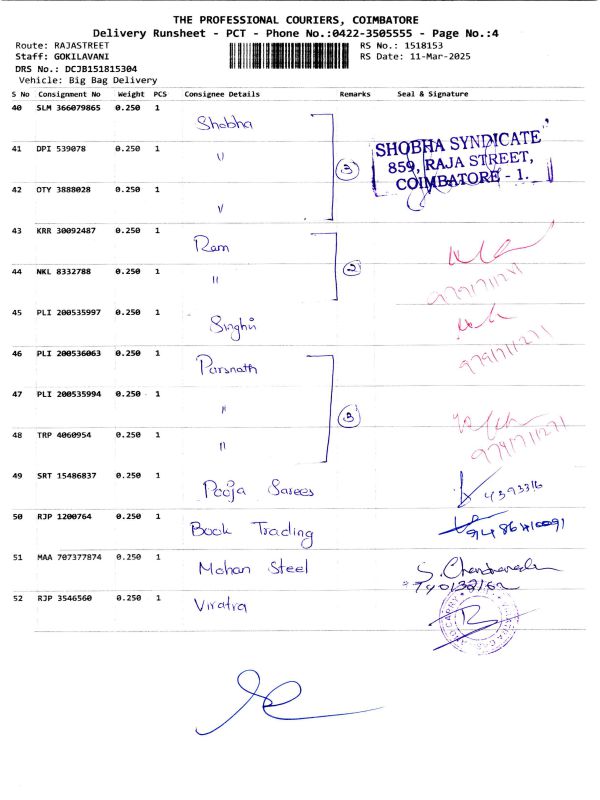 THE PROFESSIONAL COURIERS, COIMBATORE
Delivery Runsheet - PCT - Phone No.:0422-3505555 - Page No.:4
Route: RAJASTREET
RS No.: 1518153
Staff: GOKILAVANI
RS Date: 11-Mar-2025
DRS No.: DCJB151815304
Vehicle: Big Bag Delivery
S No Consignment No Weight PCS Consignee Details Remarks Seal & Signature
40 SLM 366079865 0.250 1 Shobha
41 DPI 539078 0.250 1 " 3
SHOBHA SYNDICATE
859, RAJA STREET,
COIMBATORE - 1.
42 OTY 3888028 0.250 1 "
43 KRR 30092487 0.250 1 Ram
44 NKL 8332788 0.250 1 " 2
9791711271
45 PLI 200535997 0.250 1 Singhvi
9791711271
46 PLI 200536063 0.250 1 Parsnath
47 PLI 200535994 0.250 1 " 3
48 TRP 4060954 0.250 1 "
9791711271
49 SRT 15486837 0.250 1 Pooja Sarees 4393316
50 RJP 1200764 0.250 1 Book Trading
51 MAA 707377874 0.250 1 Mohan Steel
52 RJP 3546560 0.250 1 Viratra